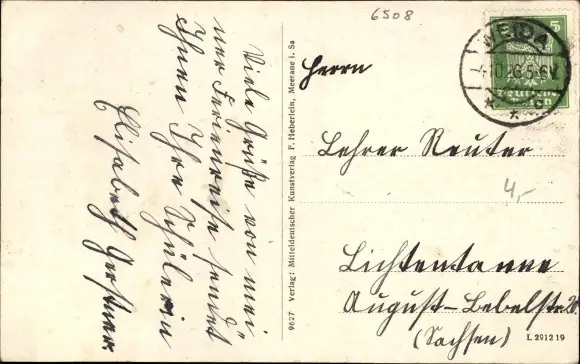 6508
Viele Grüße von mei-
ner Ferienreise sendet
Ihnen Ihre Schülerin
Elisabeth
9627 Verlag: Mitteldeutscher Kunstverlag F. Heberlein, Meerane i. Sa
WEIDA
5
Herrn
Lehrer Reuter
4,-
Lichtentanne
August-Bebelstr.
(Sachsen)
L 2912 19